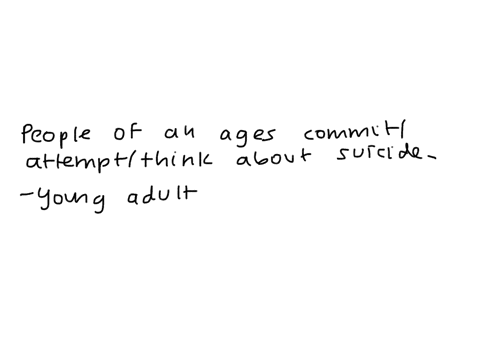 People of all ages commit/
attempt/think about suicide.
-young adult